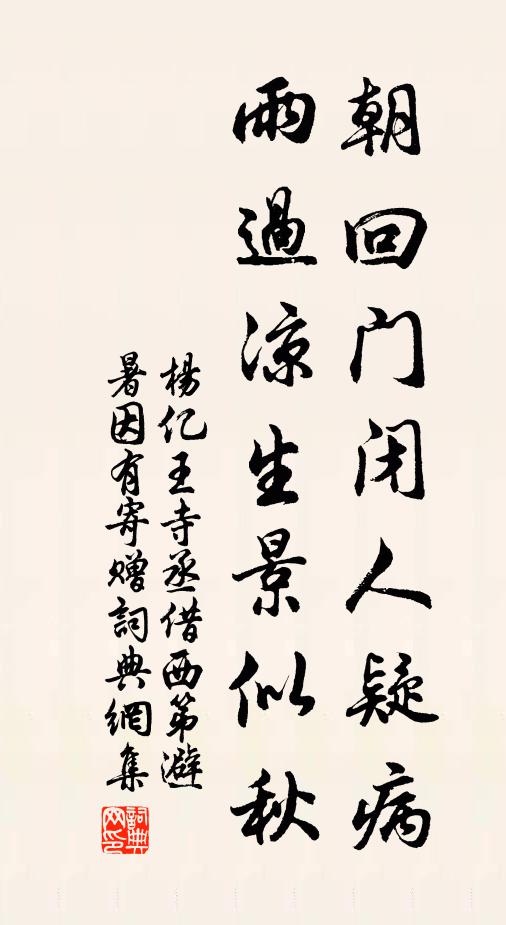 朝回门闭人疑病
雨過凉生景似秋
楊亿王寺丞借西第避
暑因有寄贈詞典網集
詞典
网印